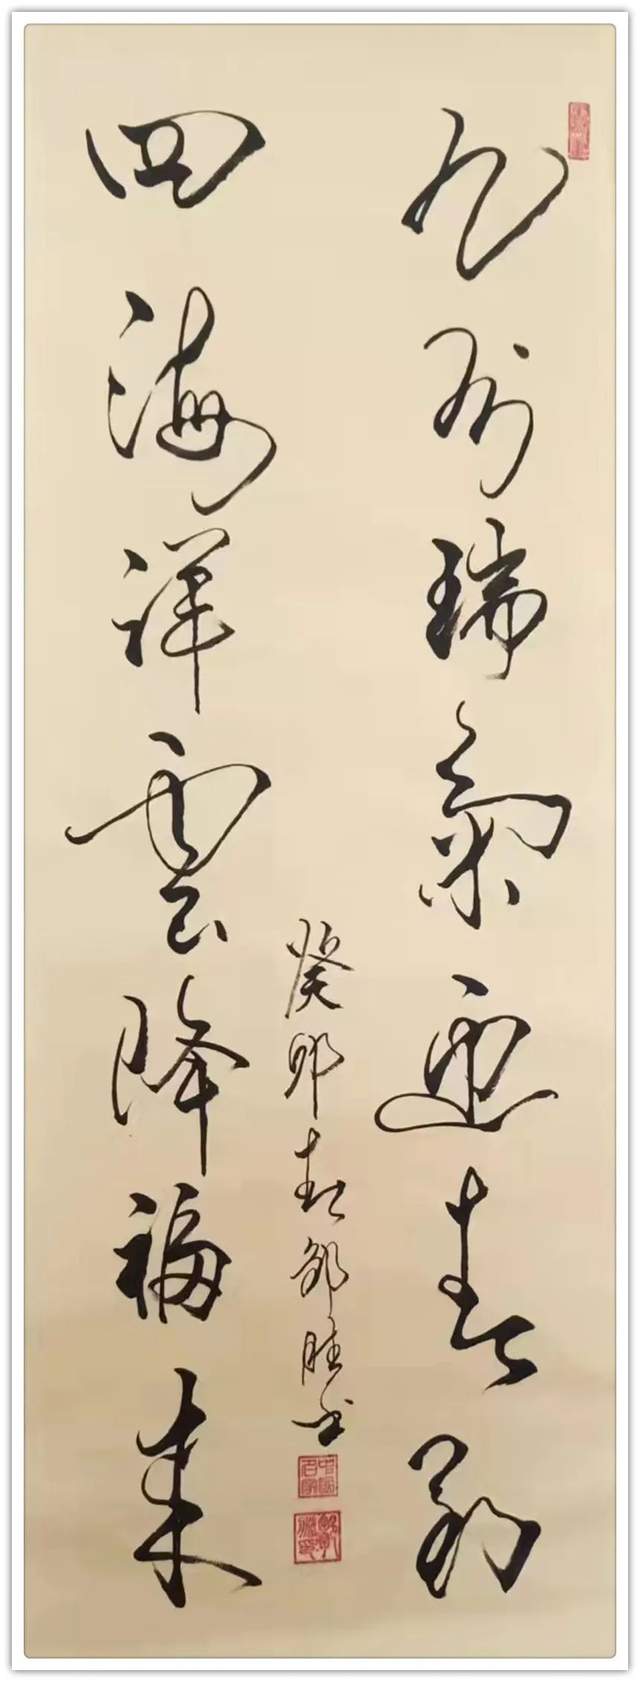 九州瑞氣迎春到
四海祥雲降福来
癸卯春邵胜书